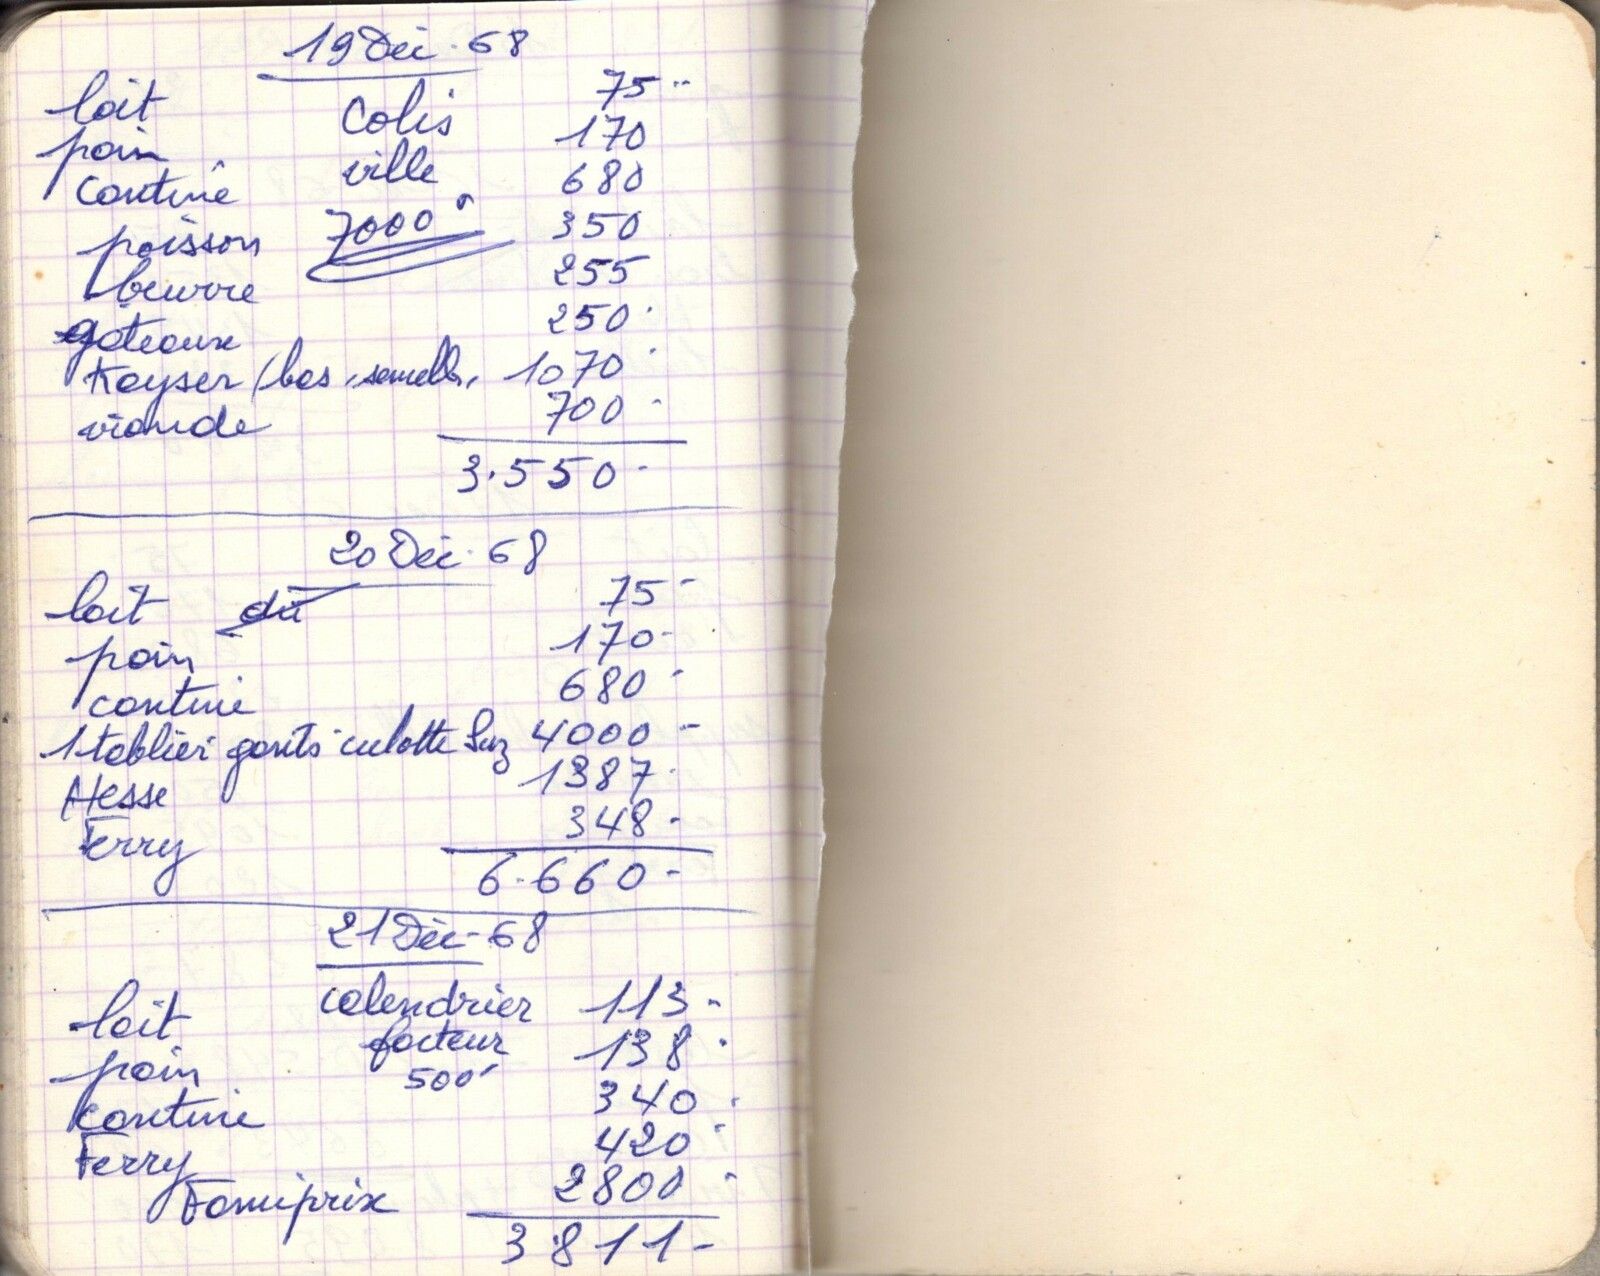 19 Déc. 68
lait 75
Colis
pain 170
ville
cantine 680
7000
poisson 350
beurre 255
gâteaux 250
Kayser (bas, semelles, 1070
viande 700
3.550
20 Déc. 68
lait dû 75
pain 170
cantine 680
1 tablier gants culotte Suz 4000
Hesse 1387
Ferry 348
6.660
21 Déc. 68
lait calendrier 113
pain facteur 138
500
cantine 340
Ferry 420
Famiprix 2800
3.811